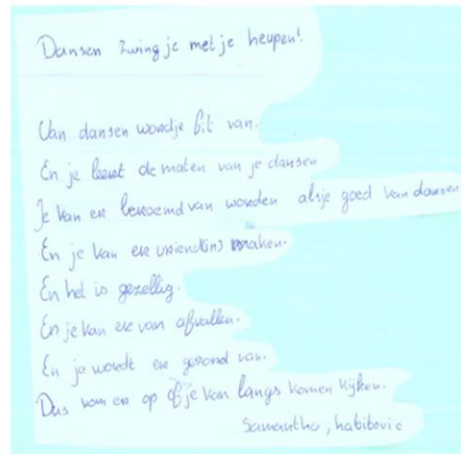 Dansen zwing je met je heupen!
Van dansen wordje fit van.
En je leert de maten van je dansen
Je kan er beroemd van worden alsje goed kan dansen
En je kan er vriend(in) maken.
En het is gezellig.
En je kan er van afvallen.
En je wordt er gezond van.
Dus kom er op of je kan langs komen kijken.
Samantha, habibovic